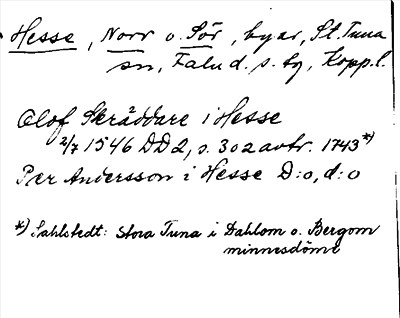 Hesse, Norr o. Sör, byar, St. Tuna
sn, Falu d. s. tg, Kopp. l.
Olof Skräddare i Hesse
2/7 1546 DD2, s. 302 avtr. 1743*)
Per Andersson i Hesse D:o, d:o
*) Sahlstedt: Stora Tuna i Dahlom o. Bergom
minnesdöme